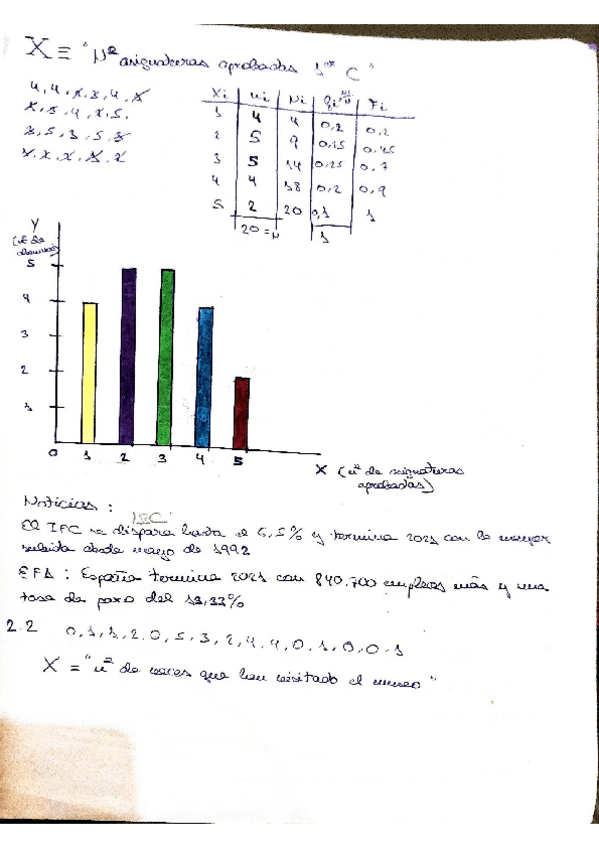 X ≡ "Nº asignaturas aprobadas 1er C"
4, 4, x, 3, 4, x
x, x, 4, x, 5,
3, 5, 3, 5, 3
x, x, x, x, x
Xi ni Ni fi = ni/N Fi
1 4 4 0,2 0,2
2 5 9 0,25 0,45
3 5 14 0,25 0,7
4 4 18 0,2 0,9
5 2 20 0,1 1
20 = N 1
Y
(nº de alumnos)
5
4
3
2
1
0 1 2 3 4 5
X (nº de asignaturas
aprobadas)
Noticias:
El IPC se dispara hasta el 6,5% y termina 2021 con la mayor
subida desde mayo de 1992
EPA: España termina 2021 con 840.700 empleos más y una
tasa de paro del 13,33%
2.2 0, 1, 1, 2, 0, 5, 3, 2, 4, 4, 0, 1, 0, 0, 1
X = "nº de veces que han visitado el museo"